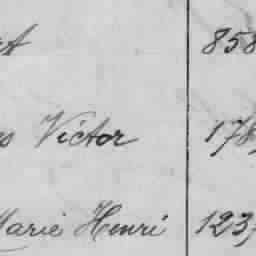 858
Victor 178
Marie Henri 123